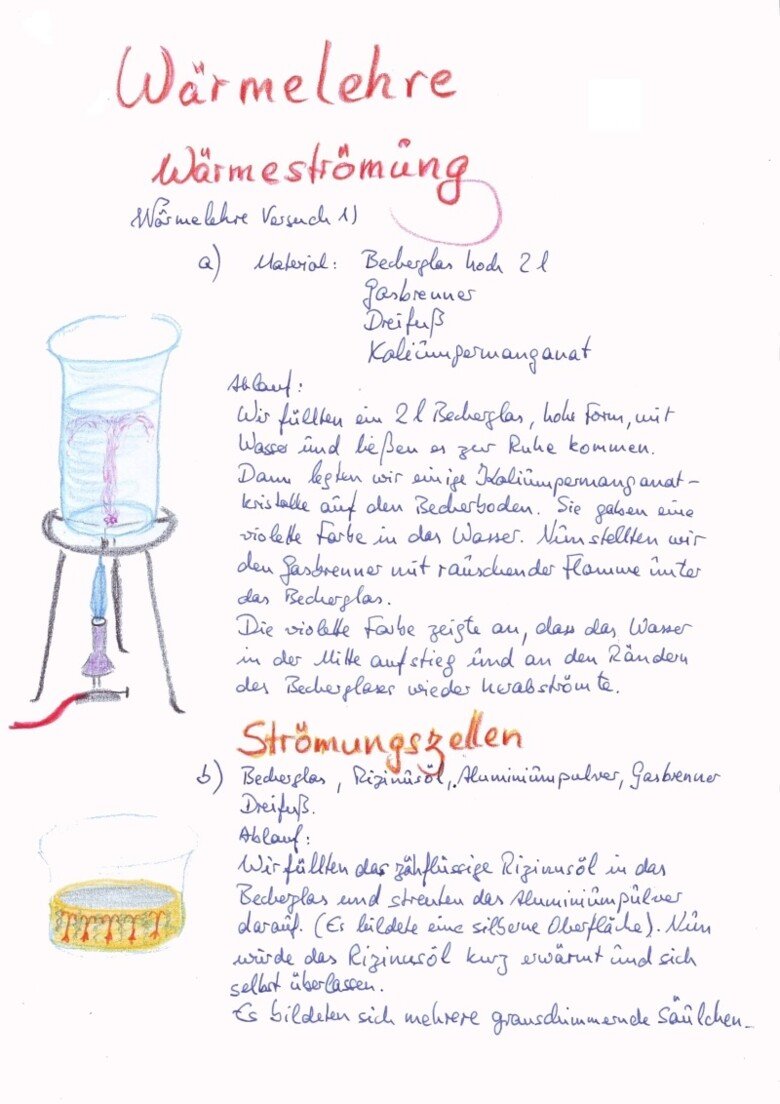 Wärmelehre
Wärmeströmung
Wärmelehre Versuch 1)
a) Material: Becherglas hoch 2 l
Gasbrenner
Dreifuß
Kaliumpermanganat
Ablauf:
Wir füllten ein 2 l Becherglas, hohe Form, mit
Wasser und ließen es zur Ruhe kommen.
Dann legten wir einige Kaliumpermanganat-
kristalle auf den Becherboden. Sie gaben eine
violette Farbe in das Wasser. Nun stellten wir
den Gasbrenner mit rauschender Flamme unter
das Becherglas.
Die violette Farbe zeigte an, dass das Wasser
in der Mitte aufstieg und an den Rändern
des Becherglases wieder herabströmte.
Strömungszellen
b) Becherglas, Rizinusöl, Aluminiumpulver, Gasbrenner
Dreifuß.
Ablauf:
Wir füllten das zähflüssige Rizinusöl in das
Becherglas und streuten das Aluminiumpulver
darauf. (Es bildete eine silberne Oberfläche). Nun
würde das Rizinusöl kurz erwärmt und sich
selbst überlassen.
Es bildeten sich mehrere grauschimmernde Säulchen_